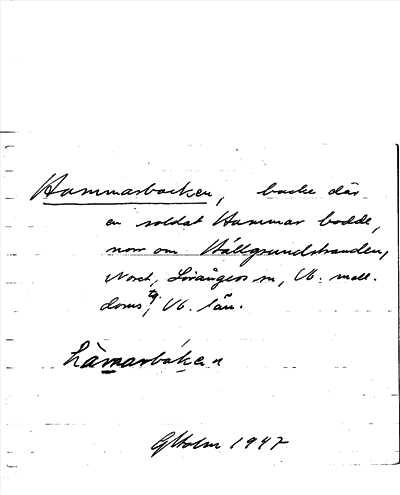 Hammarbacken, backe där
en soldat Hammar bodde,
norr om Hällgrundstranden,
Noret, Lövångers sn, Vb. mell.
doms tg, Vb. län.
hàmarbàken
G Holm 1947